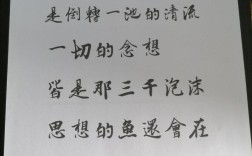 是倒轉一池的清流
一切的念想
皆是那三千泡沫
思想的魚還會在